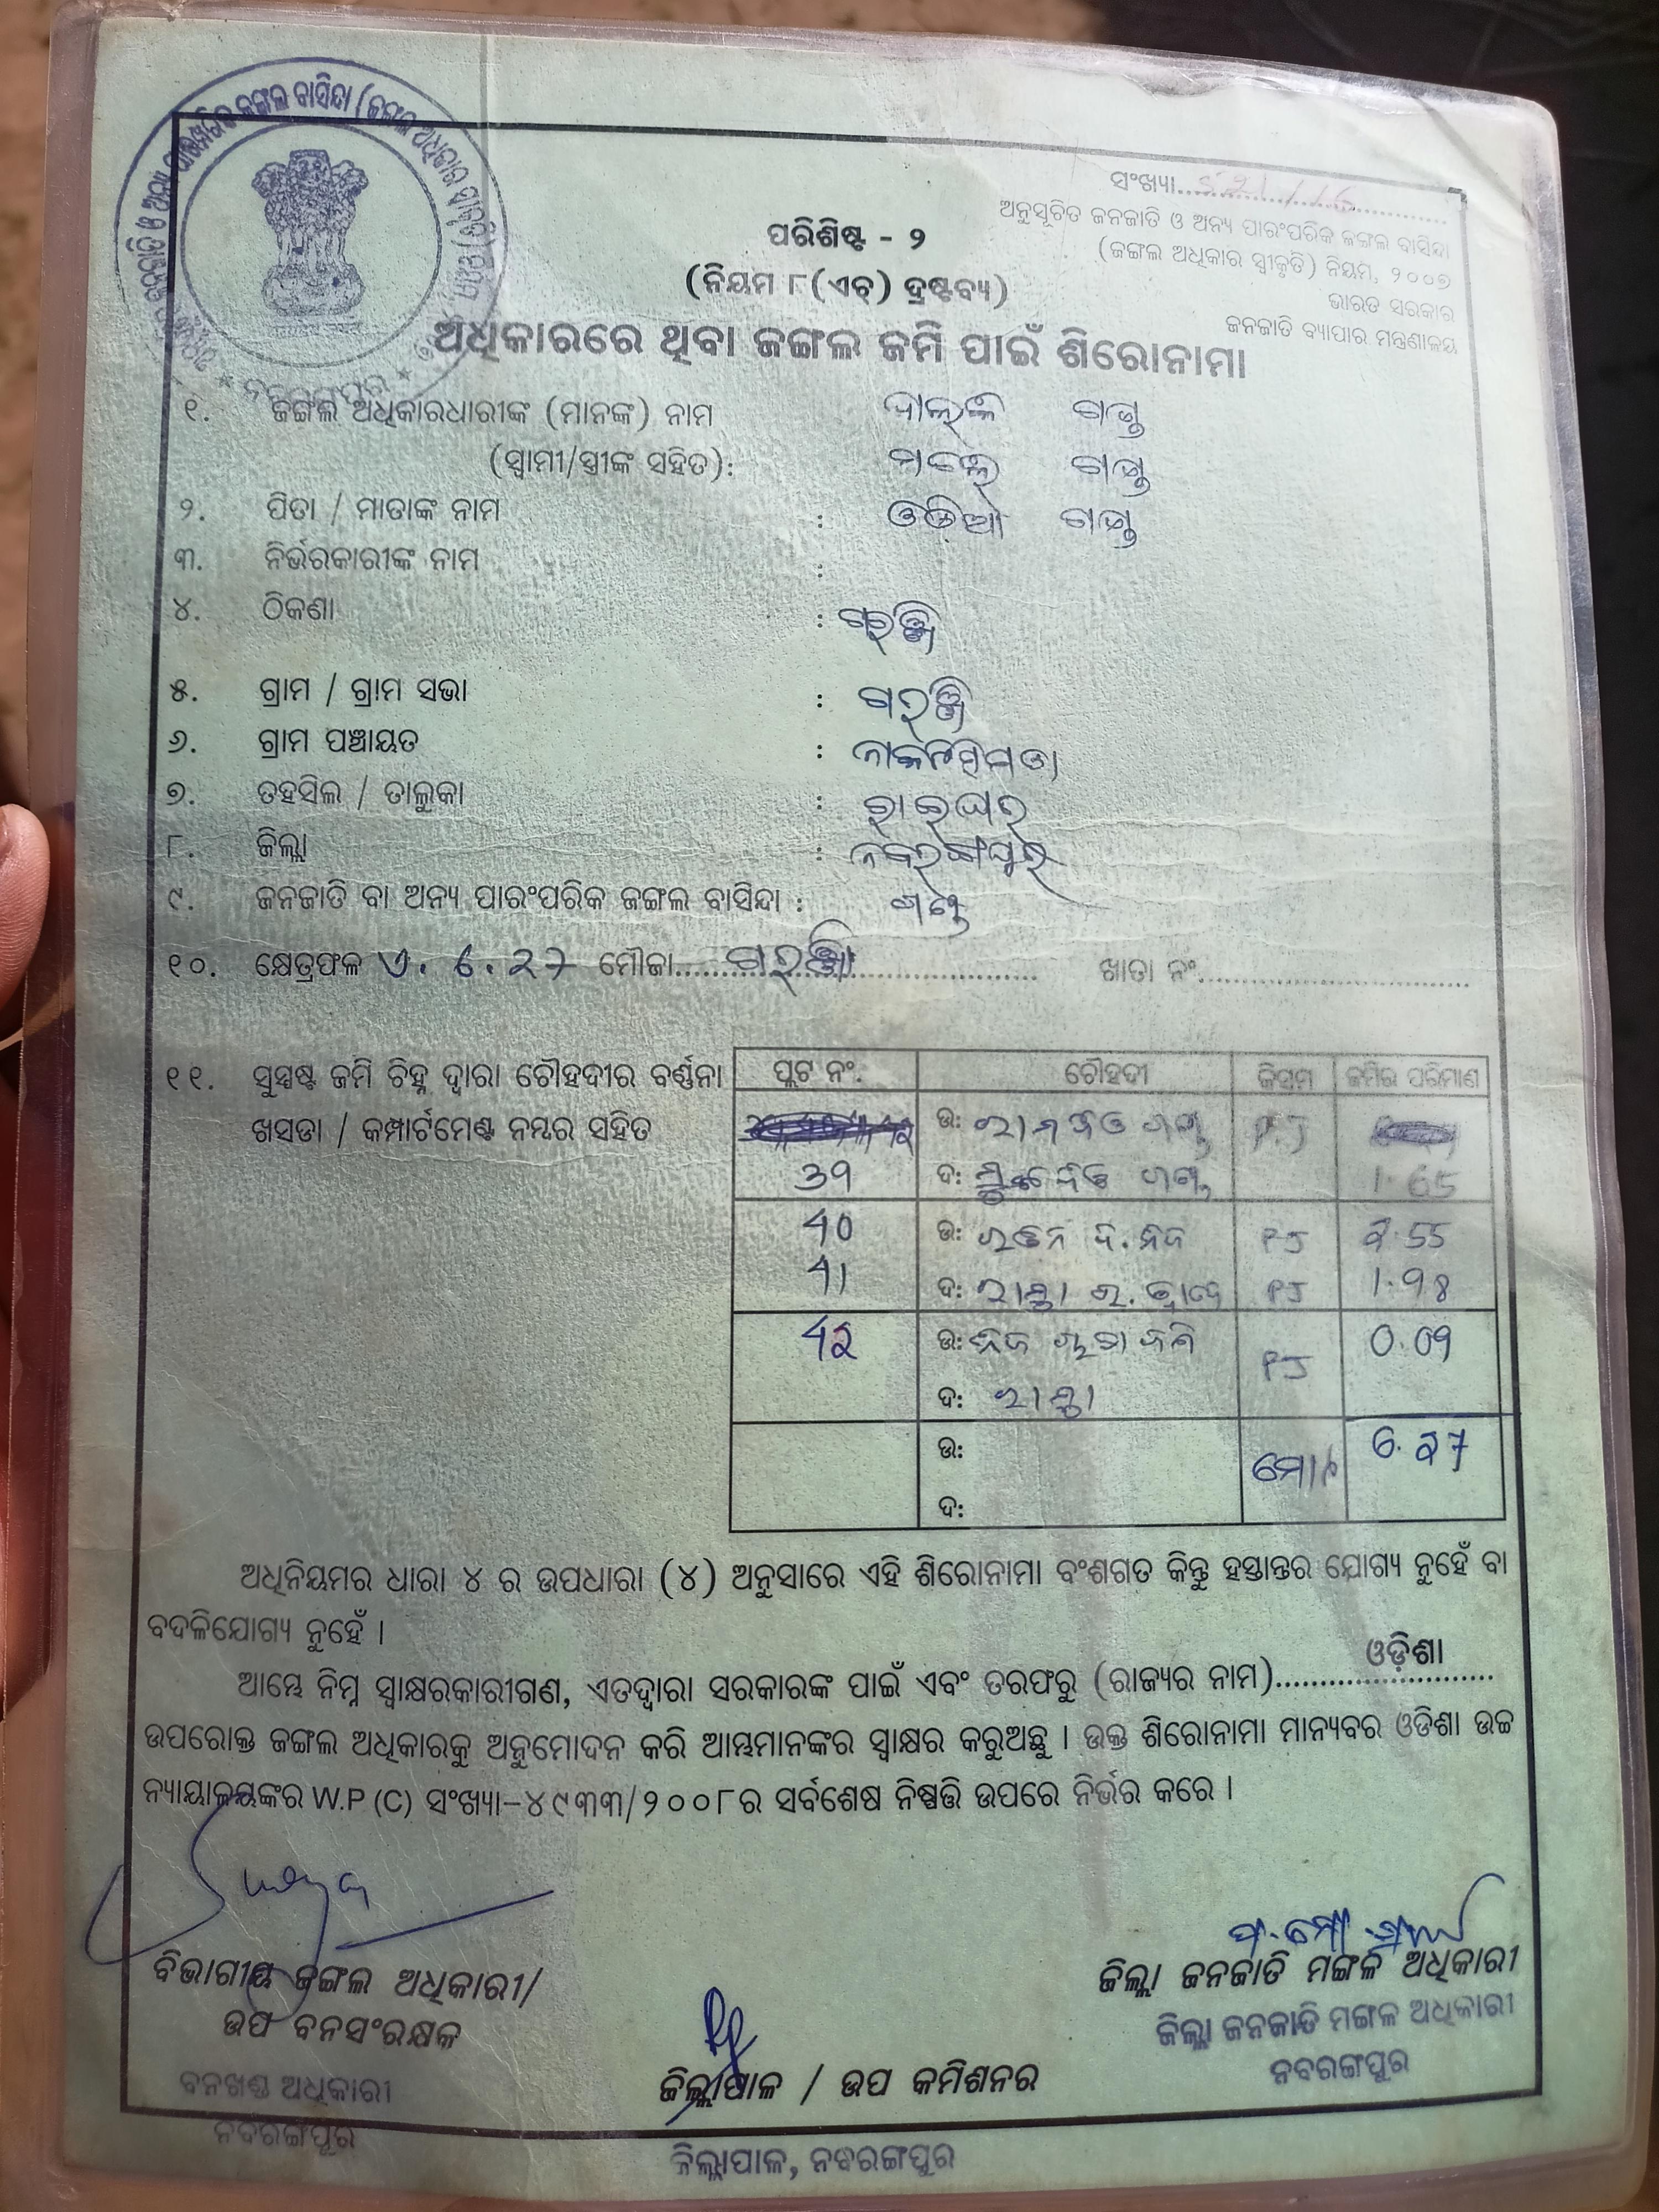 ସଂଖ୍ୟା
ଅନୁସୂଚିତ ଜନଜାତି ଓ ଅନ୍ୟ ପାରଂପରିକ ଜଙ୍ଗଲ ବାସିନ୍ଦା
(ଜଙ୍ଗଲ ଅଧିକାର ସ୍ୱୀକୃତି) ନିୟମ, ୨୦୦୭
ଭାରତ ସରକାର
ଜନଜାତି ବ୍ୟାପାର ମନ୍ତ୍ରଣାଳୟ
ପରିଶିଷ୍ଟ - ୨
(ନିୟମ ୮(ଏଚ୍) ଦ୍ରଷ୍ଟବ୍ୟ)
ଅଧିକାରରେ ଥିବା ଜଙ୍ଗଲ ଜମି ପାଇଁ ଶିରୋନାମା
୧. ଜଙ୍ଗଲ ଅଧିକାରଧାରୀଙ୍କ (ମାନଙ୍କ) ନାମ ଗଣ୍ଡ
(ସ୍ୱାମୀ/ସ୍ତ୍ରୀଙ୍କ ସହିତ): ଗଣ୍ଡ
୨. ପିତା / ମାତାଙ୍କ ନାମ : ଓଡ଼ିଆ ଗଣ୍ଡ
୩. ନିର୍ଭରକାରୀଙ୍କ ନାମ :
୪. ଠିକଣା :
୫. ଗ୍ରାମ / ଗ୍ରାମ ସଭା :
୬. ଗ୍ରାମ ପଞ୍ଚାୟତ :
୭. ତହସିଲ / ତାଲୁକା : ରାଇଘର
୮. ଜିଲ୍ଲା : ନବରଙ୍ଗପୁର
୯. ଜନଜାତି ବା ଅନ୍ୟ ପାରଂପରିକ ଜଙ୍ଗଲ ବାସିନ୍ଦା : ଗଣ୍ଡ
୧୦. କ୍ଷେତ୍ରଫଳ ଏ. 6.27 ମୌଜା ଖାତା ନଂ
୧୧. ସୁସ୍ପଷ୍ଟ ଜମି ଚିହ୍ନ ଦ୍ୱାରା ଚୌହଦୀର ବର୍ଣ୍ଣନା
ଖସଡା / କମ୍ପାର୍ଟମେଣ୍ଟ ନମ୍ବର ସହିତ
ପ୍ଲଟ ନଂ. ଚୌହଦୀ କିସମ ଜମିର ପରିମାଣ
ଉ: ଗଣ୍ଡ PJ
39 ଦ: ଗଣ୍ଡ 1.65
40 ଉ: PJ 2.55
41 ଦ: ରାସ୍ତା PJ 1.98
42 ଉ: PJ 0.09
ଦ: ରାସ୍ତା
ଉ: ମୋଟ 6.27
ଦ:
ଅଧିନିୟମର ଧାରା ୪ ର ଉପଧାରା (୪) ଅନୁସାରେ ଏହି ଶିରୋନାମା ବଂଶଗତ କିନ୍ତୁ ହସ୍ତାନ୍ତର ଯୋଗ୍ୟ ନୁହେଁ ବା
ବଦଳିଯୋଗ୍ୟ ନୁହେଁ ।
ଆମ୍ଭେ ନିମ୍ନ ସ୍ୱାକ୍ଷରକାରୀଗଣ, ଏତଦ୍ୱାରା ସରକାରଙ୍କ ପାଇଁ ଏବଂ ତରଫରୁ (ରାଜ୍ୟର ନାମ) ଓଡ଼ିଶା
ଉପରୋକ୍ତ ଜଙ୍ଗଲ ଅଧିକାରକୁ ଅନୁମୋଦନ କରି ଆମ୍ଭମାନଙ୍କର ସ୍ୱାକ୍ଷର କରୁଅଛୁ । ଉକ୍ତ ଶିରୋନାମା ମାନ୍ୟବର ଓଡିଶା ଉଚ୍ଚ
ନ୍ୟାୟାଳୟଙ୍କର W.P (C) ସଂଖ୍ୟା-୪୯୩୩/୨୦୦୮ର ସର୍ବଶେଷ ନିଷ୍ପତ୍ତି ଉପରେ ନିର୍ଭର କରେ ।
ବିଭାଗୀୟ ଜଙ୍ଗଲ ଅଧିକାରୀ/
ଉପ ବନସଂରକ୍ଷକ
ବନଖଣ୍ଡ ଅଧିକାରୀ
ନବରଙ୍ଗପୁର
ଜିଲ୍ଲାପାଳ / ଉପ କମିଶନର
ଜିଲ୍ଲାପାଳ, ନବରଙ୍ଗପୁର
ଜିଲ୍ଲା ଜନଜାତି ମଙ୍ଗଳ ଅଧିକାରୀ
ଜିଲ୍ଲା ଜନଜାତି ମଙ୍ଗଳ ଅଧିକାରୀ
ନବରଙ୍ଗପୁର